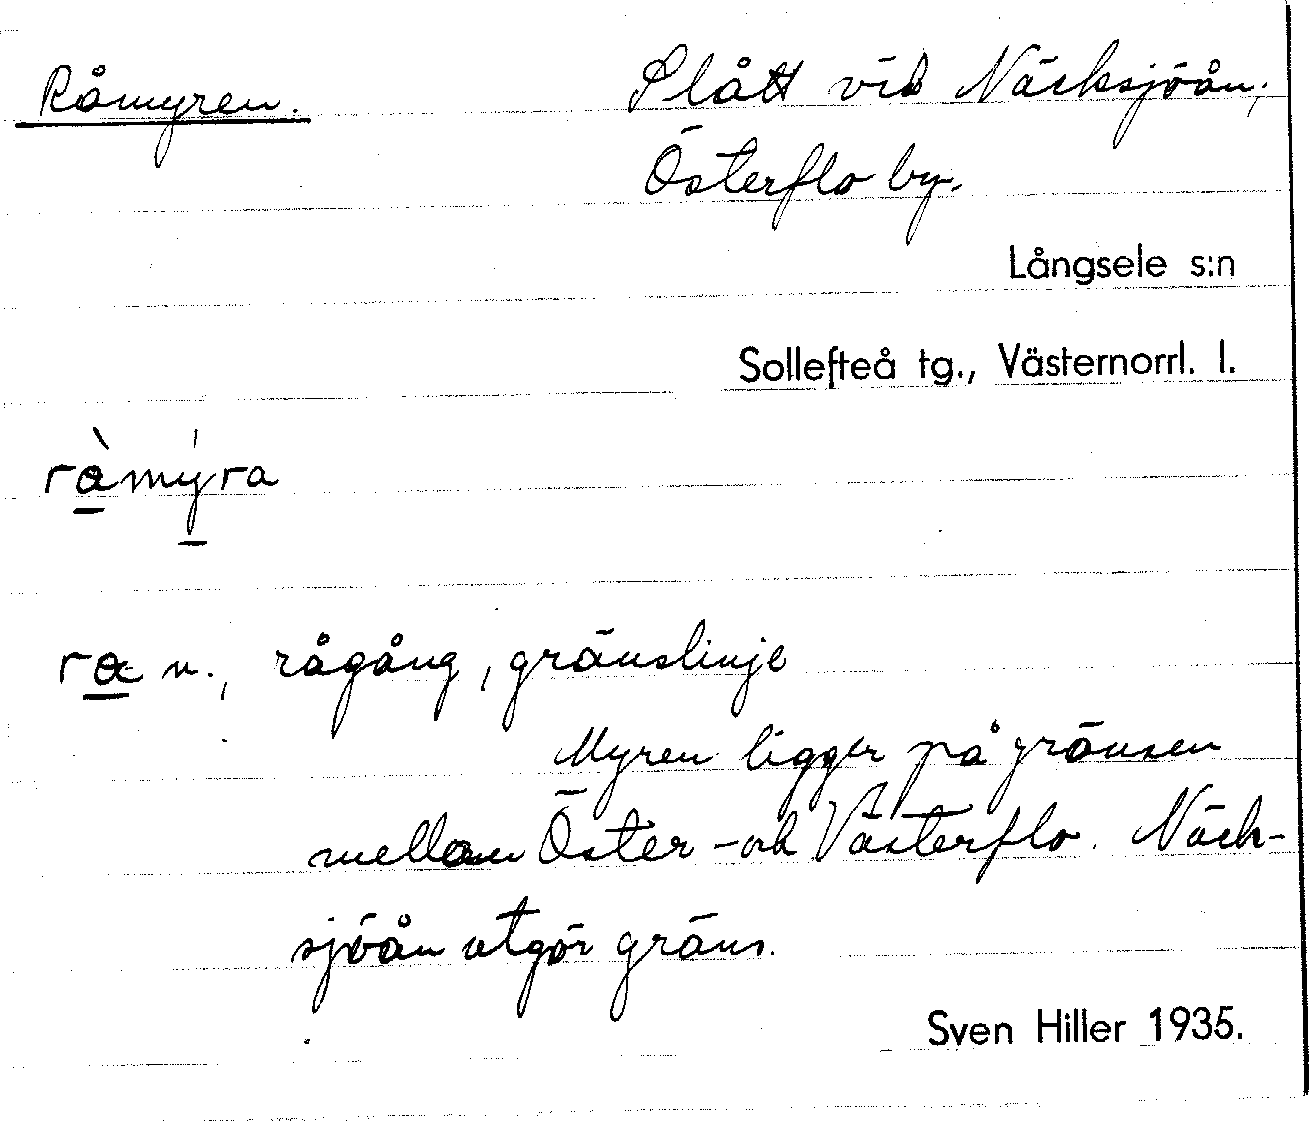 Råmyren.
Slått vid Näcksjöån,
Österflo by.
Långsele s:n
Sollefteå tg., Västernorrl. l.
ràmýra
ra n., rågång, gränslinje
Myren ligger på gränsen
mellan Öster- och Västerflo. Näck-
sjöån utgör gräns.
Sven Hiller 1935.